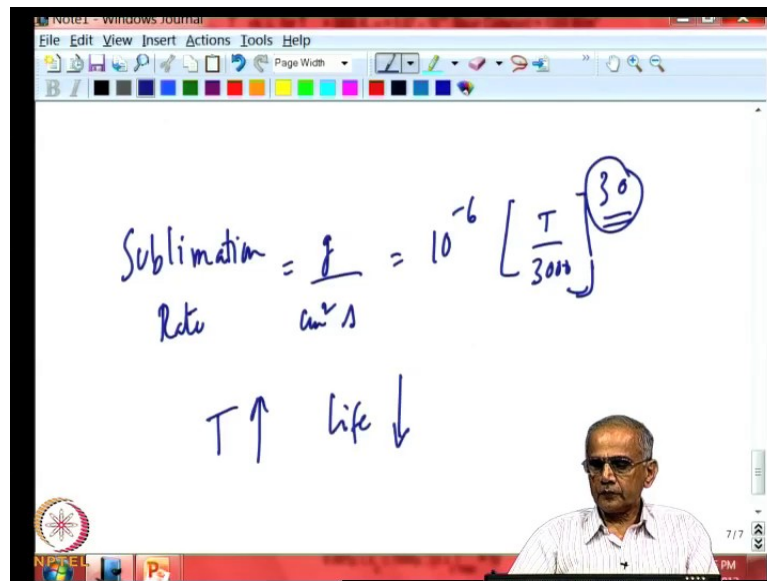 Note1 - Windows Journal
File Edit View Insert Actions Tools Help
Page Width
B I
Sublimation Rate = g / cm² s = 10⁻⁶ [T / 3000]³⁰
T↑ life ↓
7/7
NPTEL
PM